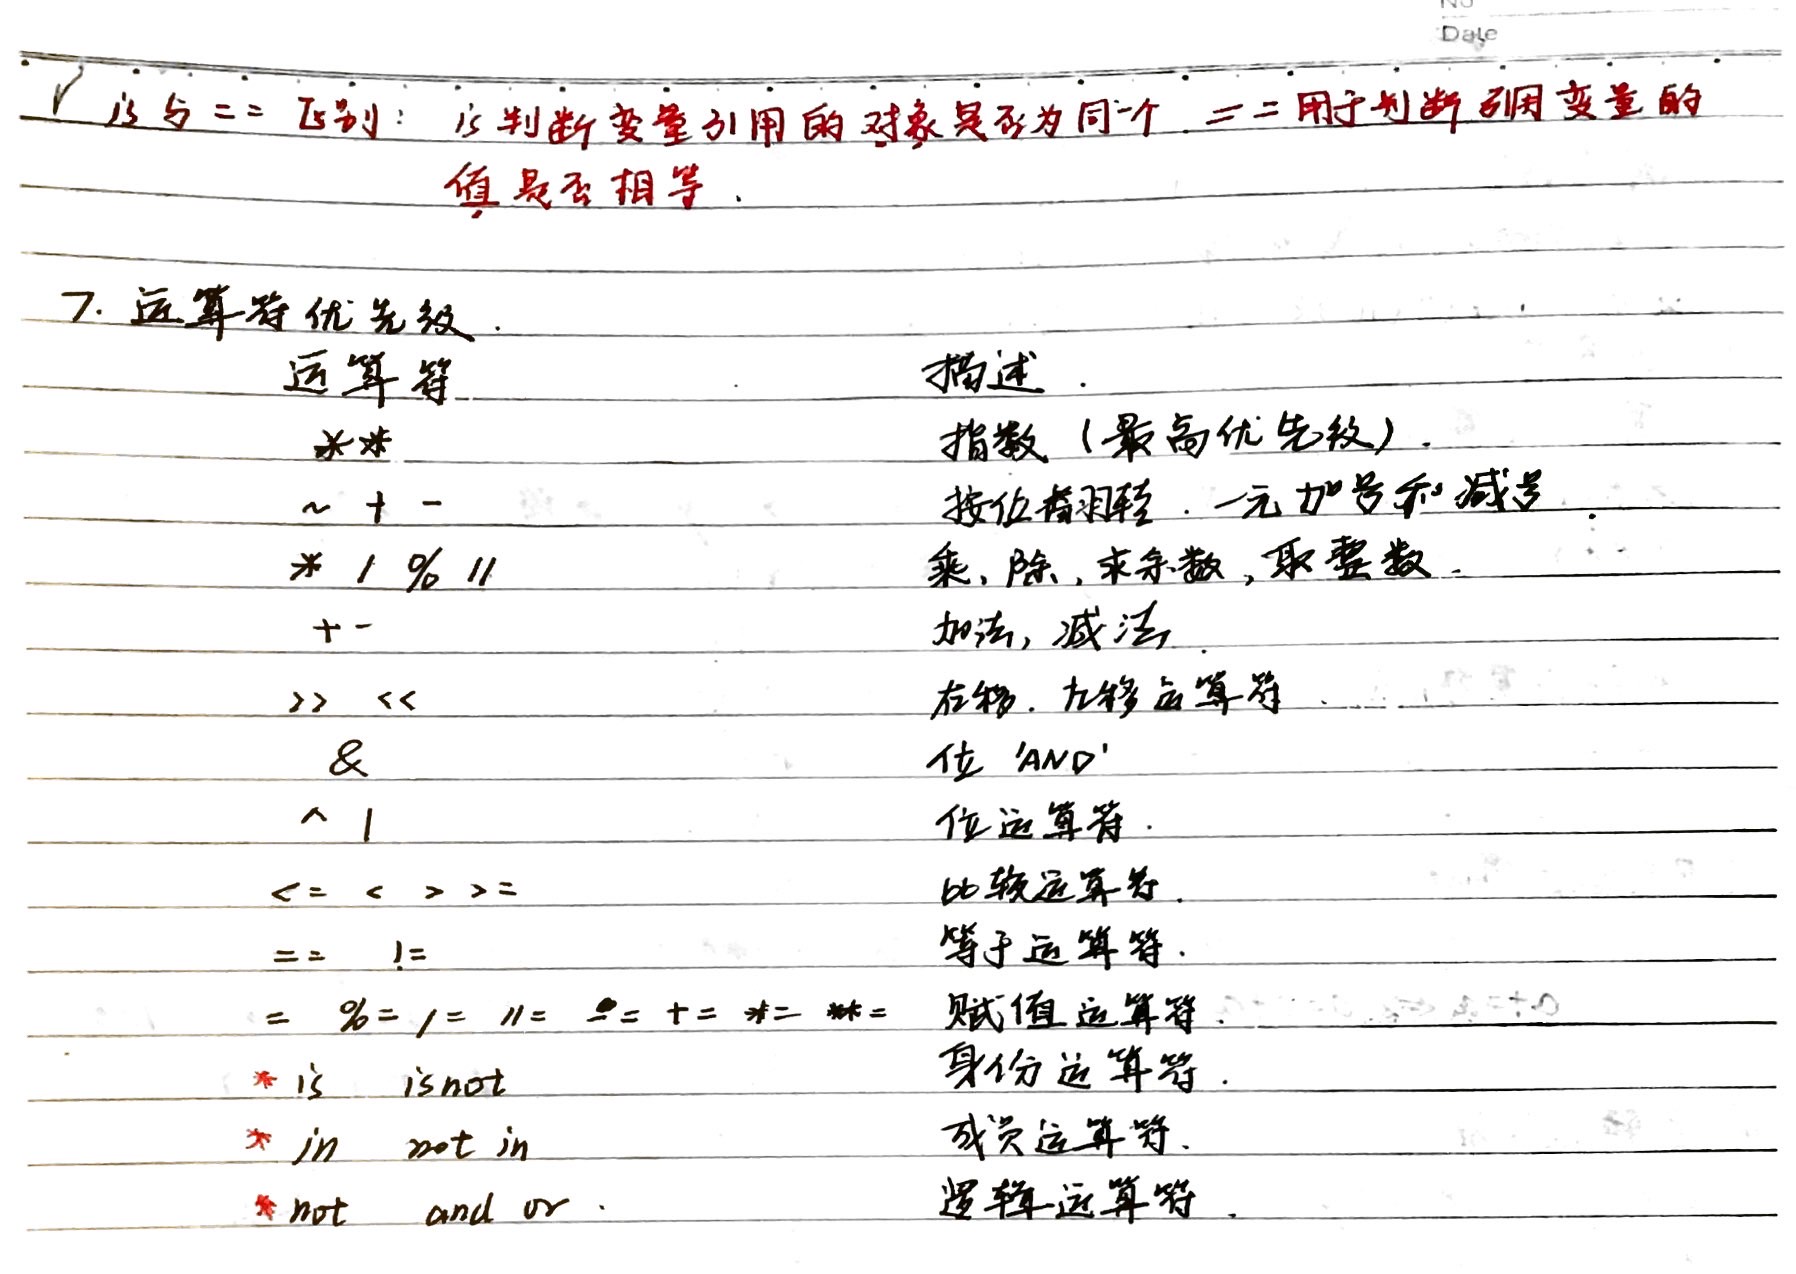 No
Date
√ is 与 == 区别: is 判断变量引用的对象是否为同一个 == 用于判断引用变量的
值是否相等.
7. 运算符优先级.
运算符 描述.
** 指数 (最高优先级).
~ + - 按位翻转. 一元加号和减号.
* / % // 乘, 除, 求余数, 取整数.
+ - 加法, 减法.
>> << 右移. 左移运算符.
& 位 'AND'
^ | 位运算符.
<= < > >= 比较运算符.
== != 等于运算符.
= %= /= //= -= += *= **= 赋值运算符.
* is is not 身份运算符.
* in not in 成员运算符.
* not and or. 逻辑运算符.